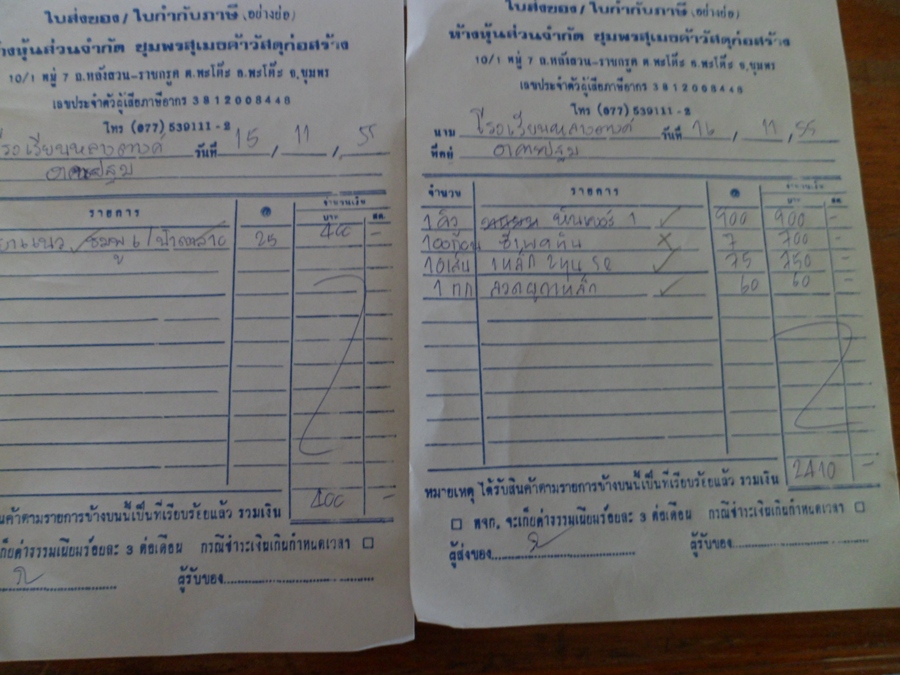 ใบส่งของ/ ใบกำกับภาษี (อย่างย่อ)
ห้างหุ้นส่วนจำกัด ชุมพรสุเมธค้าวัสดุก่อสร้าง
10/1 หมู่ 7 ถ.หลังสวน-ราชกรูด ต.พะโต๊ะ อ.พะโต๊ะ จ.ชุมพร
เลขประจำตัวผู้เสียภาษีอากร 3812008448
โทร (077) 539111-2
วันที่ 15 / 11 / 55
รายการ @ จำนวนเงิน
บาท สต.
25 400 -
สินค้าตามรายการข้างบนนี้เป็นที่เรียบร้อยแล้ว รวมเงิน 400 -
เก็บค่าธรรมเนียมร้อยละ 3 ต่อเดือน กรณีชำระเงินเกินกำหนดเวลา
ผู้รับของ
ใบส่งของ/ ใบกำกับภาษี (อย่างย่อ)
ห้างหุ้นส่วนจำกัด ชุมพรสุเมธค้าวัสดุก่อสร้าง
10/1 หมู่ 7 ถ.หลังสวน-ราชกรูด ต.พะโต๊ะ อ.พะโต๊ะ จ.ชุมพร
เลขประจำตัวผู้เสียภาษีอากร 3812008448
โทร (077) 539111-2
นาม โรงเรียน วันที่ 16 / 11 / 55
ที่อยู่
จำนวน รายการ @ จำนวนเงิน
บาท สต.
1 คิว 1 900 900 -
100ก้อน 7 700 -
10เส้น เหล็ก 2หุน 75 750 -
1 กก ลวดผูกเหล็ก 60 60 -
หมายเหตุ ได้รับสินค้าตามรายการข้างบนนี้เป็นที่เรียบร้อยแล้ว รวมเงิน 2410 -
หจก. จะเก็บค่าธรรมเนียมร้อยละ 3 ต่อเดือน กรณีชำระเงินเกินกำหนดเวลา
ผู้ส่งของ ผู้รับของ